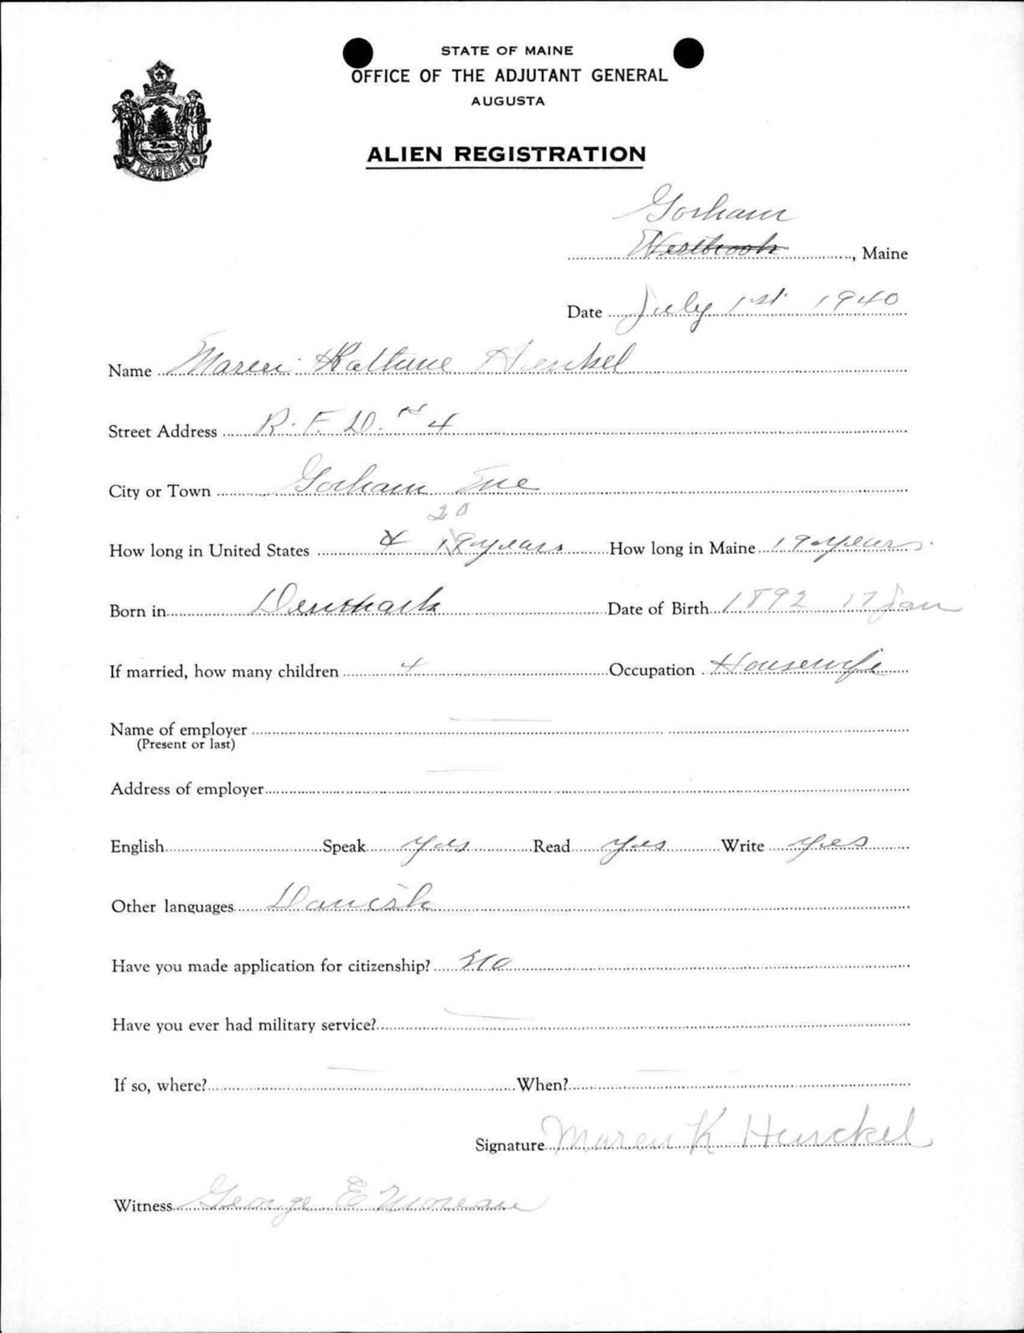 STATE OF MAINE
OFFICE OF THE ADJUTANT GENERAL
AUGUSTA
MAINE
ALIEN REGISTRATION
Gorham
Westbrook, Maine
Date July 1st 1940
Name Maren Henkel
Street Address R. F. D. no 4
City or Town Gorham Me
20
How long in United States 19 years How long in Maine 19 years.
Born in Denmark Date of Birth 1892 17 Jan
If married, how many children 4 Occupation Housewife
Name of employer
(Present or last)
Address of employer
English Speak yes Read yes Write yes
Other languages Danish
Have you made application for citizenship? no
Have you ever had military service?
If so, where? When?
Signature Maren K Henckel
Witness George E Moreau